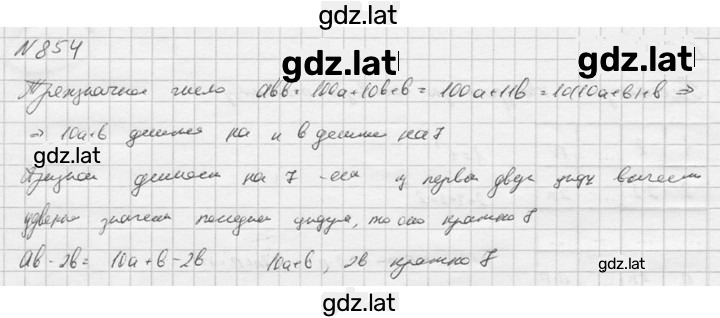 gdz.lat
N 854
gdz.lat
gdz.lat
Трехзначное число abb = 100a+10b+b = 100a+11b = 10(10a+b)+b ⇒
⇒ 10a+b делится на и b делит на 7
gdz.lat
Признак делимости на 7 -если из первой двух цифр вычесть
удвоенн значение последней цифры, то оно кратно 7
ab - 2b = 10a+b-2b 10a+b, 2b - кратно 7
gdz.lat
gdz.lat